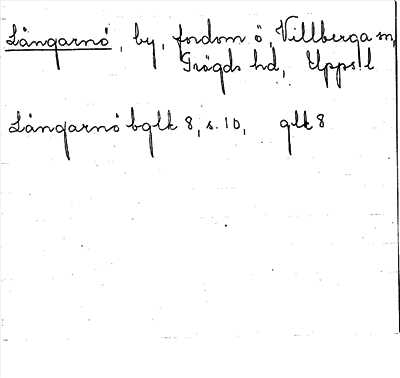 Långarnö, by, fordom ö, Villberga sn,
Trögds hd, Upps. l
Långarnö bglk 8, s. 10, glk 8